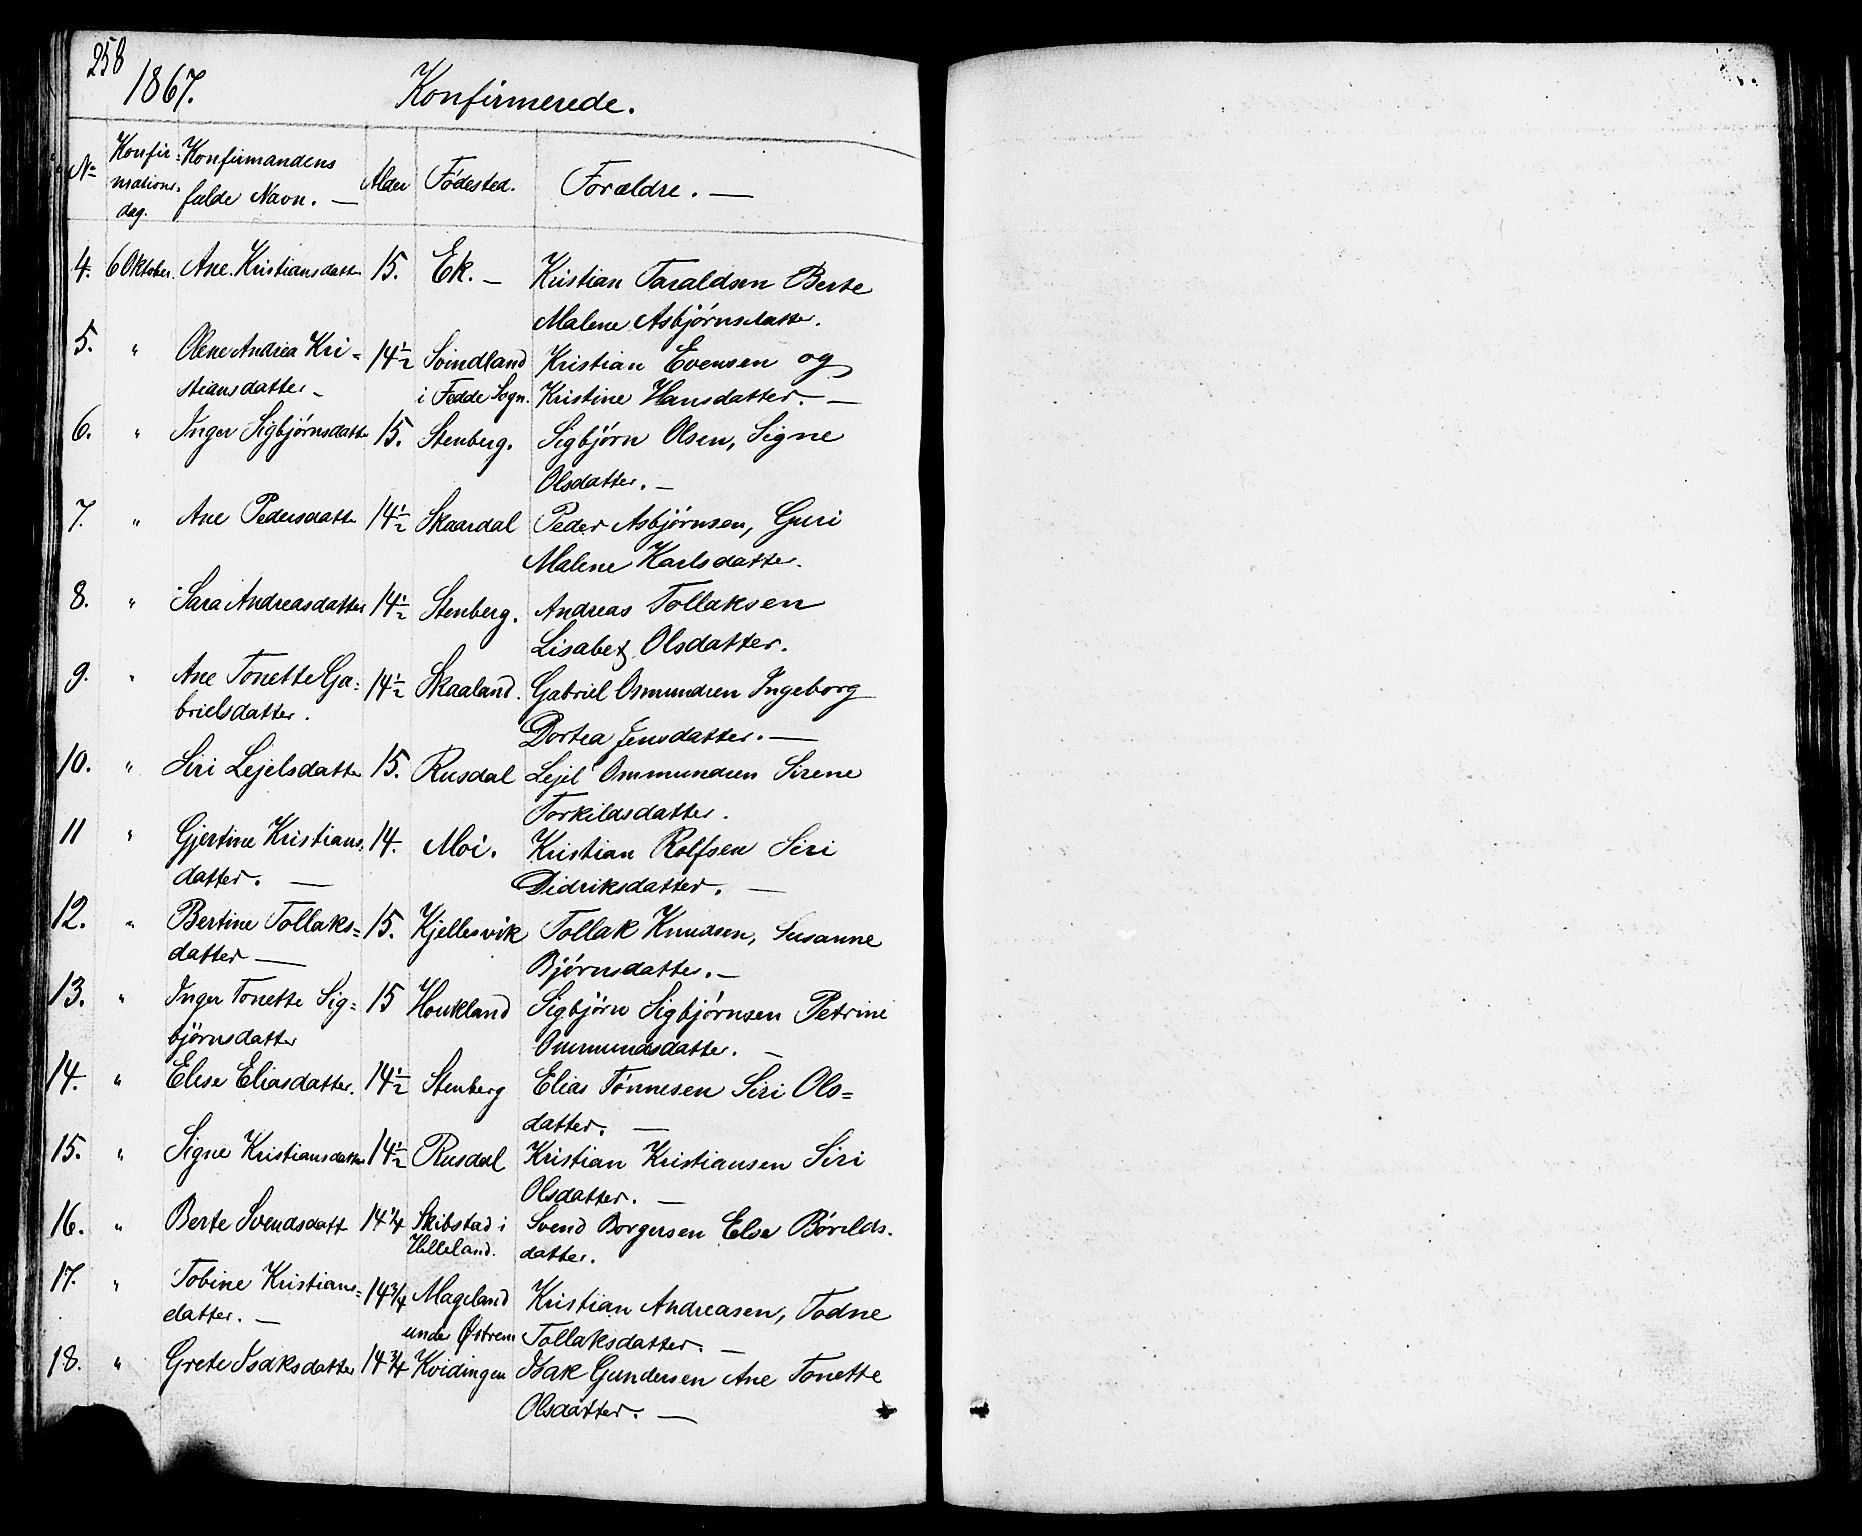 258
1867. Konfirmerede.
No Konfir- Konfirmandens Alder Fødested. Forældre. —
mations- fulde Navn. —
dag.
4. 6 Oktober. Ane Kristiansdatter 15. Ek. — Kristian Taraldsen Berte
Malene Asbjørnsdatter.
5. " Olene Andrea Kri= 14½ Svindland Kristian Evensen og
stiansdatter — i Fedde Sogn. Kristine Hansdatter. —
6. " Inger Sigbjørnsdatter 15. Stenberg. Sigbjørn Olsen, Signe
Olsdatter. —
7. " Ane Pedersdatter 14½ Skaardal Peder Asbjørnsen, Guri
Malene Karlsdatter.
8. " Sara Andreasdatter 14½ Stenberg. Andreas Tollaksen
Lisabet Olsdatter.
9. " Ane Tonette Ga= 14½ Skaaland. Gabriel Osmundsen Ingeborg
brielsdatter. Dortea Jensdatter. —
10. " Siri Lejelsdatter 15. Rusdal Lejel Ommundsen Sirene
Torkildsdatter.
11 " Gjertine Kristians- 14. Moi. Kristian Rolfsen Siri
datter. — Didriksdatter. —
12. " Bertine Tollaks= 15. Kjellesvik Tollak Knudsen, Susanne
datter — Bjørnsdatter. —
13. " Inger Tonette Sig= 15 Houkland Sigbjørn Sigbjørnsen Petrine
bjørnsdatter Ommundsdatter. —
14. " Elise Eliasdatter. 14½ Stenberg Elias Tønnesen Siri Ols=
datter. —
15. " Signe Kristiansdatter 14½ Rusdal Kristian Kristiansen Siri
Olsdatter. —
16. " Berte Svendsdatt 14¼ Skibstad i Svend Borgersen Else Børilds.
Helleland. datter.
17. " Tobine Kristians= 14¾ Mageland Kristian Andreasen, Todne
datter. — under Østrem Tollaksdatter. —
18. " Grete Isaksdatter 14¾ Kvidingen Isak Gundersen Ane Tonette
Olsdatter. —